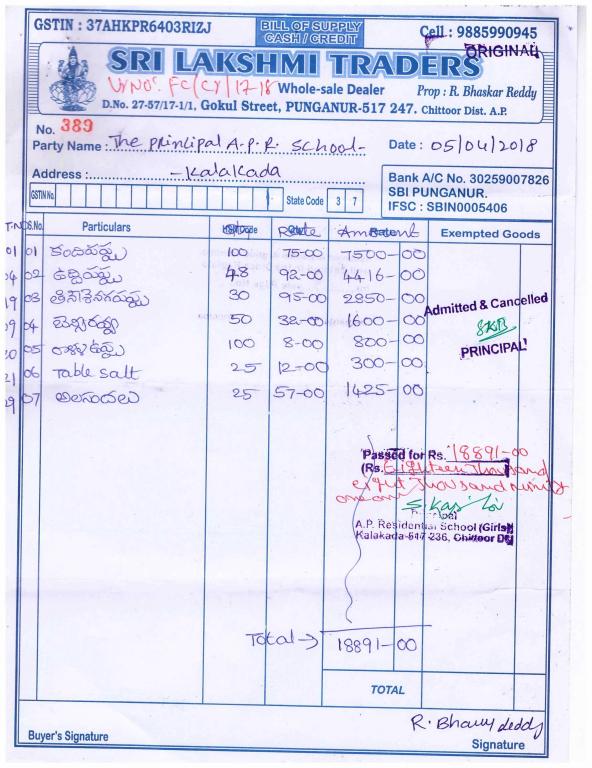 GSTIN : 37AHKPR6403RIZJ
BILL OF SUPPLY
CASH / CREDIT
Cell : 9885990945
ORIGINAL
SRI LAKSHMI TRADERS
VrNo: FC/CY/17-18 Whole-sale Dealer Prop : R. Bhaskar Reddy
D.No. 27-57/17-1/1, Gokul Street, PUNGANUR-517 247. Chittoor Dist. A.P.
No. 389
Party Name : The principal A.P.R. School- Date : 05/04/2018
Address : -Kalakada
Bank A/C No. 30259007826
SBI PUNGANUR.
IFSC : SBIN0005406
GSTIN No. State Code 3 7
S.No. Particulars Rate Amount Exempted Goods
01 01 కందిపప్పు 100 75-00 7500-00
02 ఉద్దిపప్పు 48 92-00 4416-00
19 03 30 95-00 2850-00
04 50 32-00 1600-00
05 100 8-00 800-00
21 06 Table salt 25 12-00 300-00
07 అలసందలు 25 57-00 1425-00
Admitted & Cancelled
SKB
PRINCIPAL
Passed for Rs. 18891-00
(Rs. Eighteen Thousand
eight
one only
Principal
A.P. Residential School (Girls)
Kalakada-517 236, Chittoor Dt
Total → 18891-00
TOTAL
Buyer's Signature
Signature